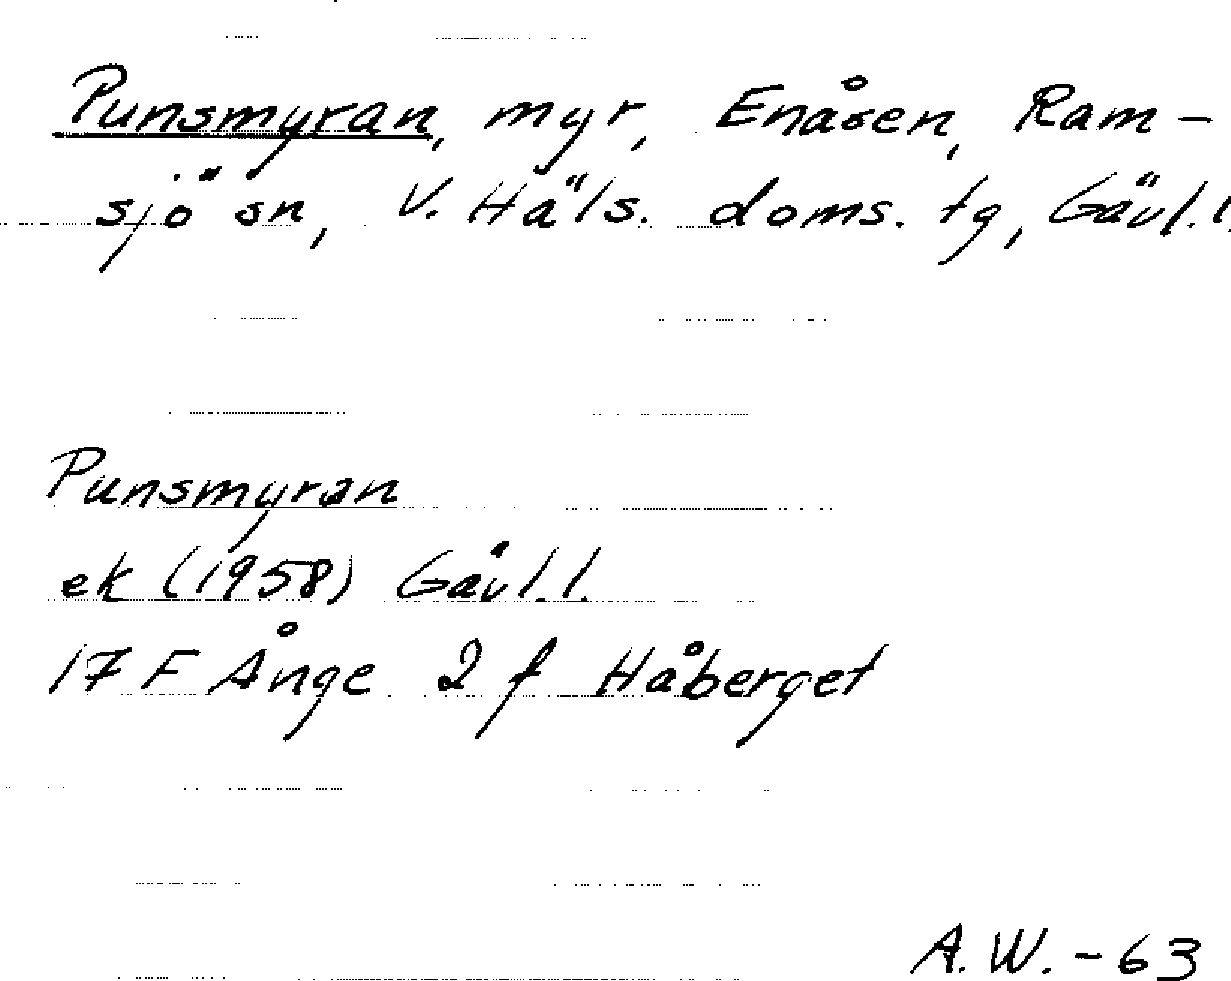 Punsmyran, myr, Enåsen, Ram-
sjö sn, V. Häls. doms. tg, Gävl. l.
Punsmyran
ek (1958) Gävl. l.
17 F Ånge 2 f Håberget
A.W. - 63